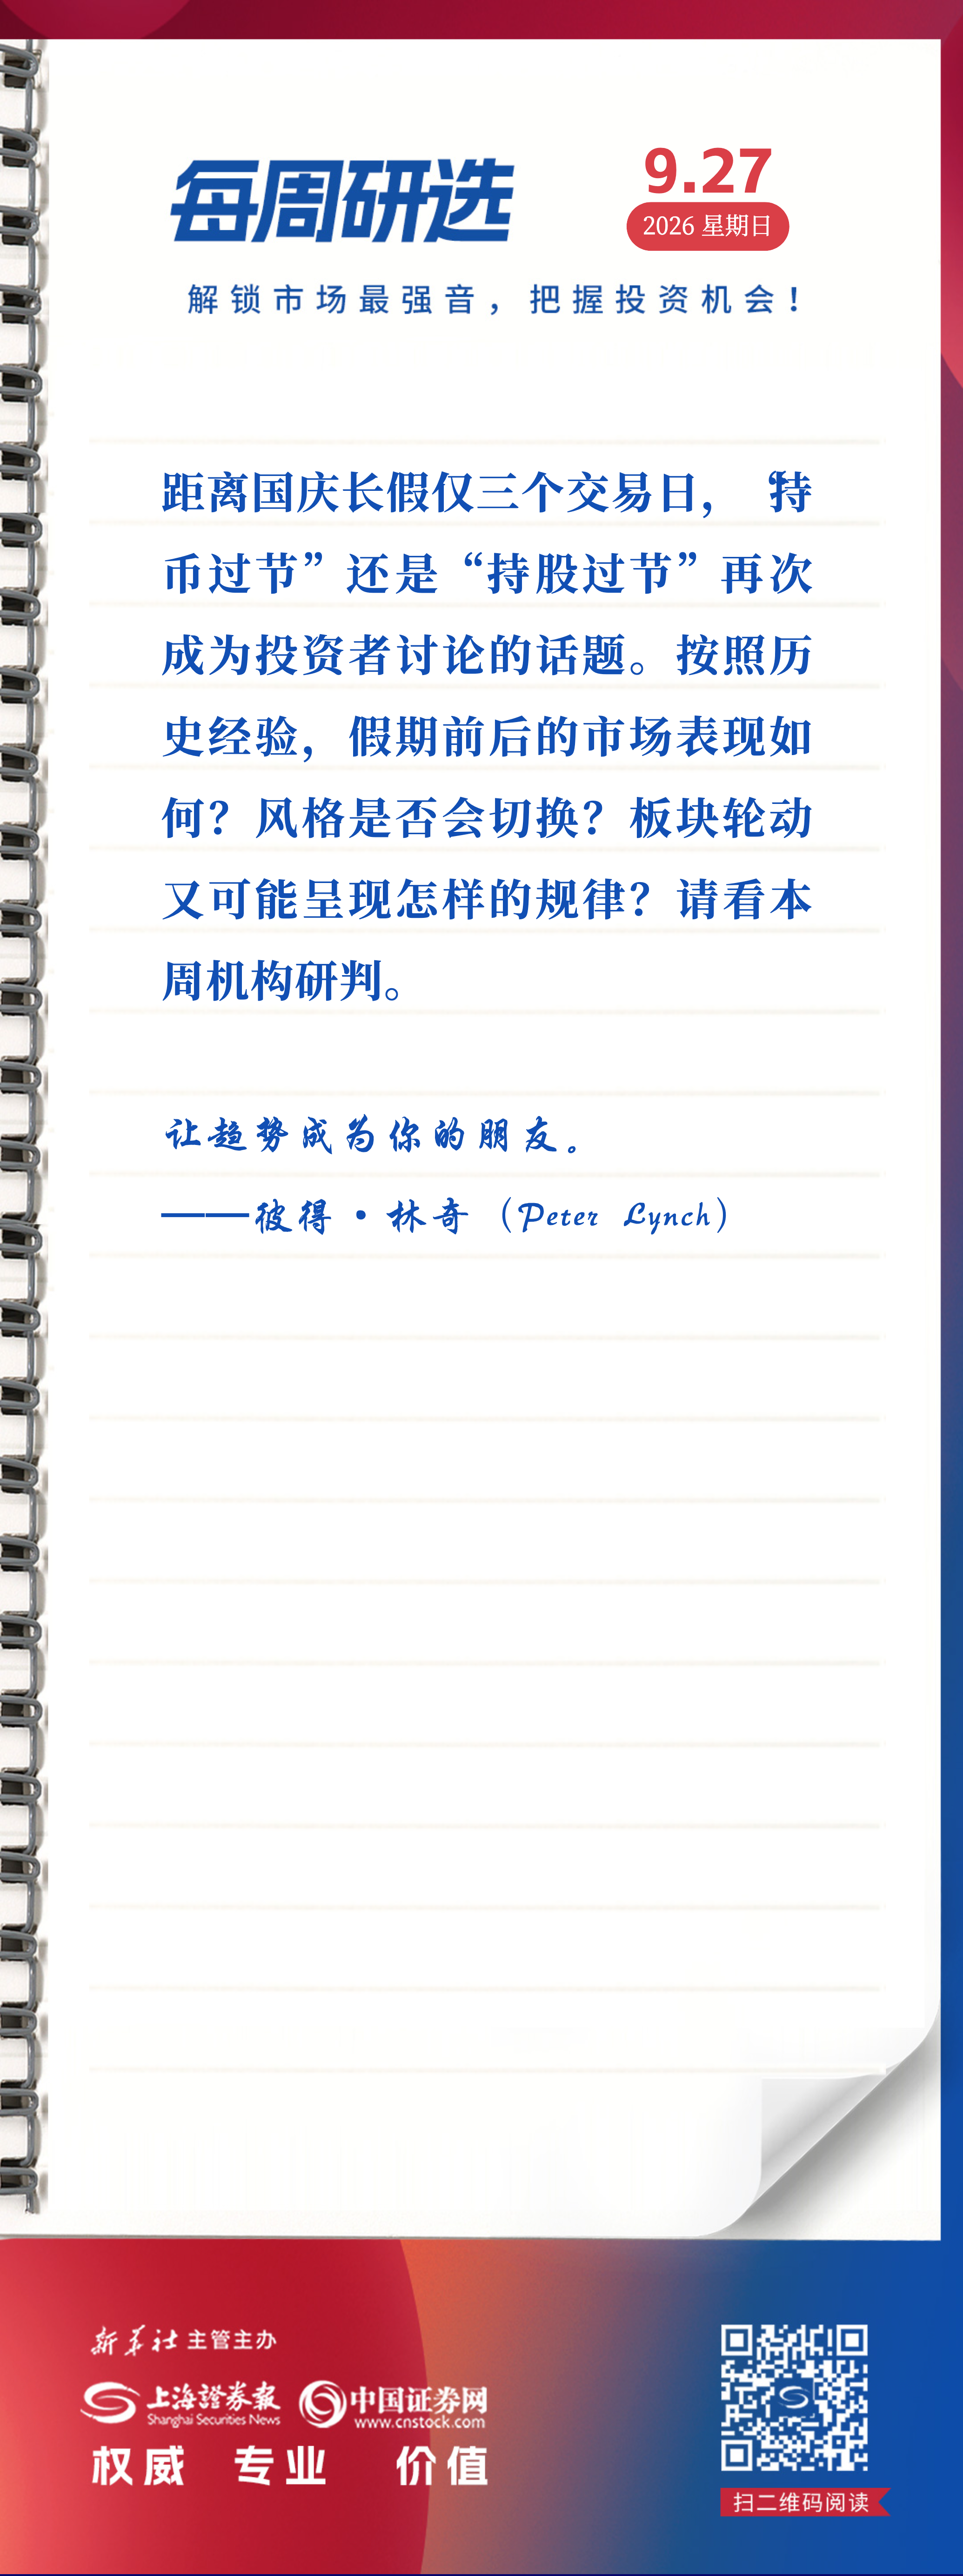 每周研选
9.27
2026 星期日
解锁市场最强音，把握投资机会！
距离国庆长假仅三个交易日，“持
币过节”还是“持股过节”再次
成为投资者讨论的话题。按照历
史经验，假期前后的市场表现如
何？风格是否会切换？板块轮动
又可能呈现怎样的规律？请看本
周机构研判。
让趋势成为你的朋友。
——彼得·林奇（Peter Lynch）
新华社 主管主办
上海證券報
Shanghai Securities News
中国证券网
www.cnstock.com
权威 专业 价值
扫二维码阅读